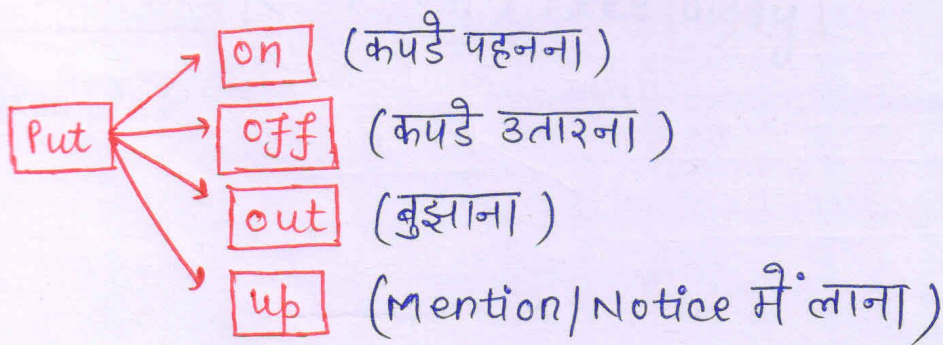 Put
on (कपडे पहनना)
off (कपडे उतारना)
out (बुझाना)
up (Mention/Notice में लाना)